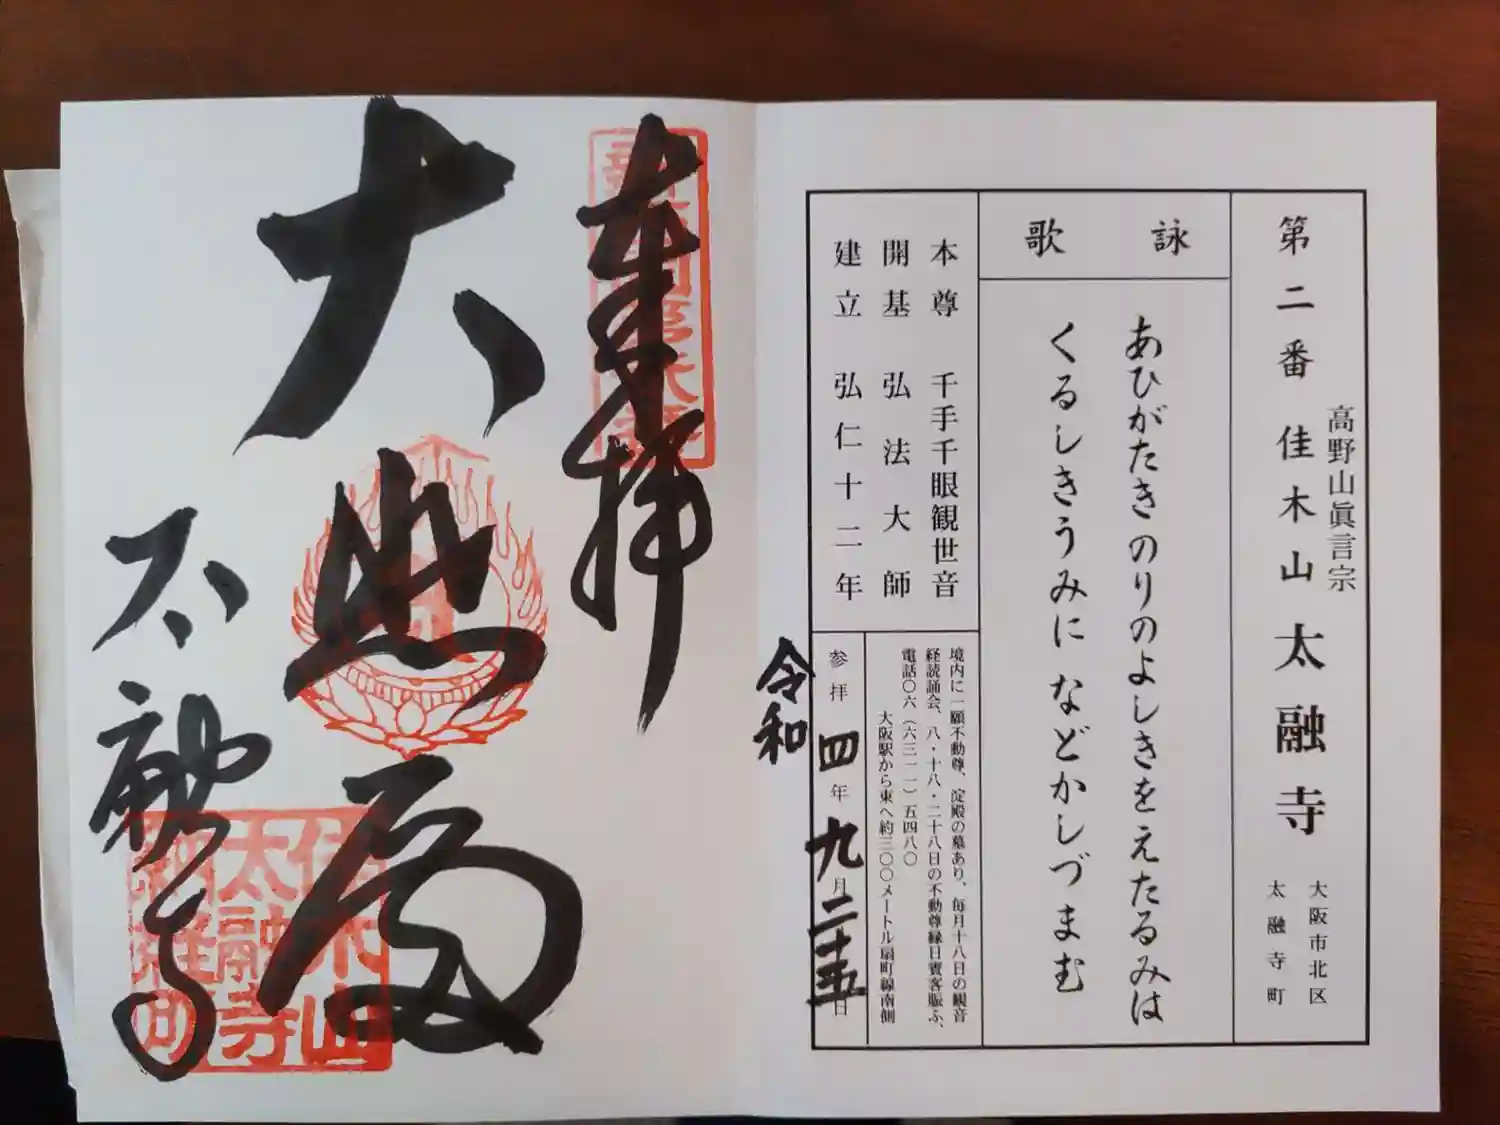 高野山眞言宗
第二番 佳木山 太融寺
大阪市北区
太融寺町
詠歌
あひがたきのりのよしきをえたるみは
くるしきうみになどかしづまむ
本尊 千手千眼観世音
開基 弘法大師
建立 弘仁十二年
境内に一願不動尊、淀殿の墓あり、毎月十八日の観音
経読誦会、八・十八・二十八日の不動尊縁日賓客賑ふ、
電話〇六(六三一一)五四八〇
大阪駅から東へ約三〇〇メートル扇町線南側
参拝 令和四年九月二十五日
奉拝
大悲殿
太融寺
佳木山
太融寺